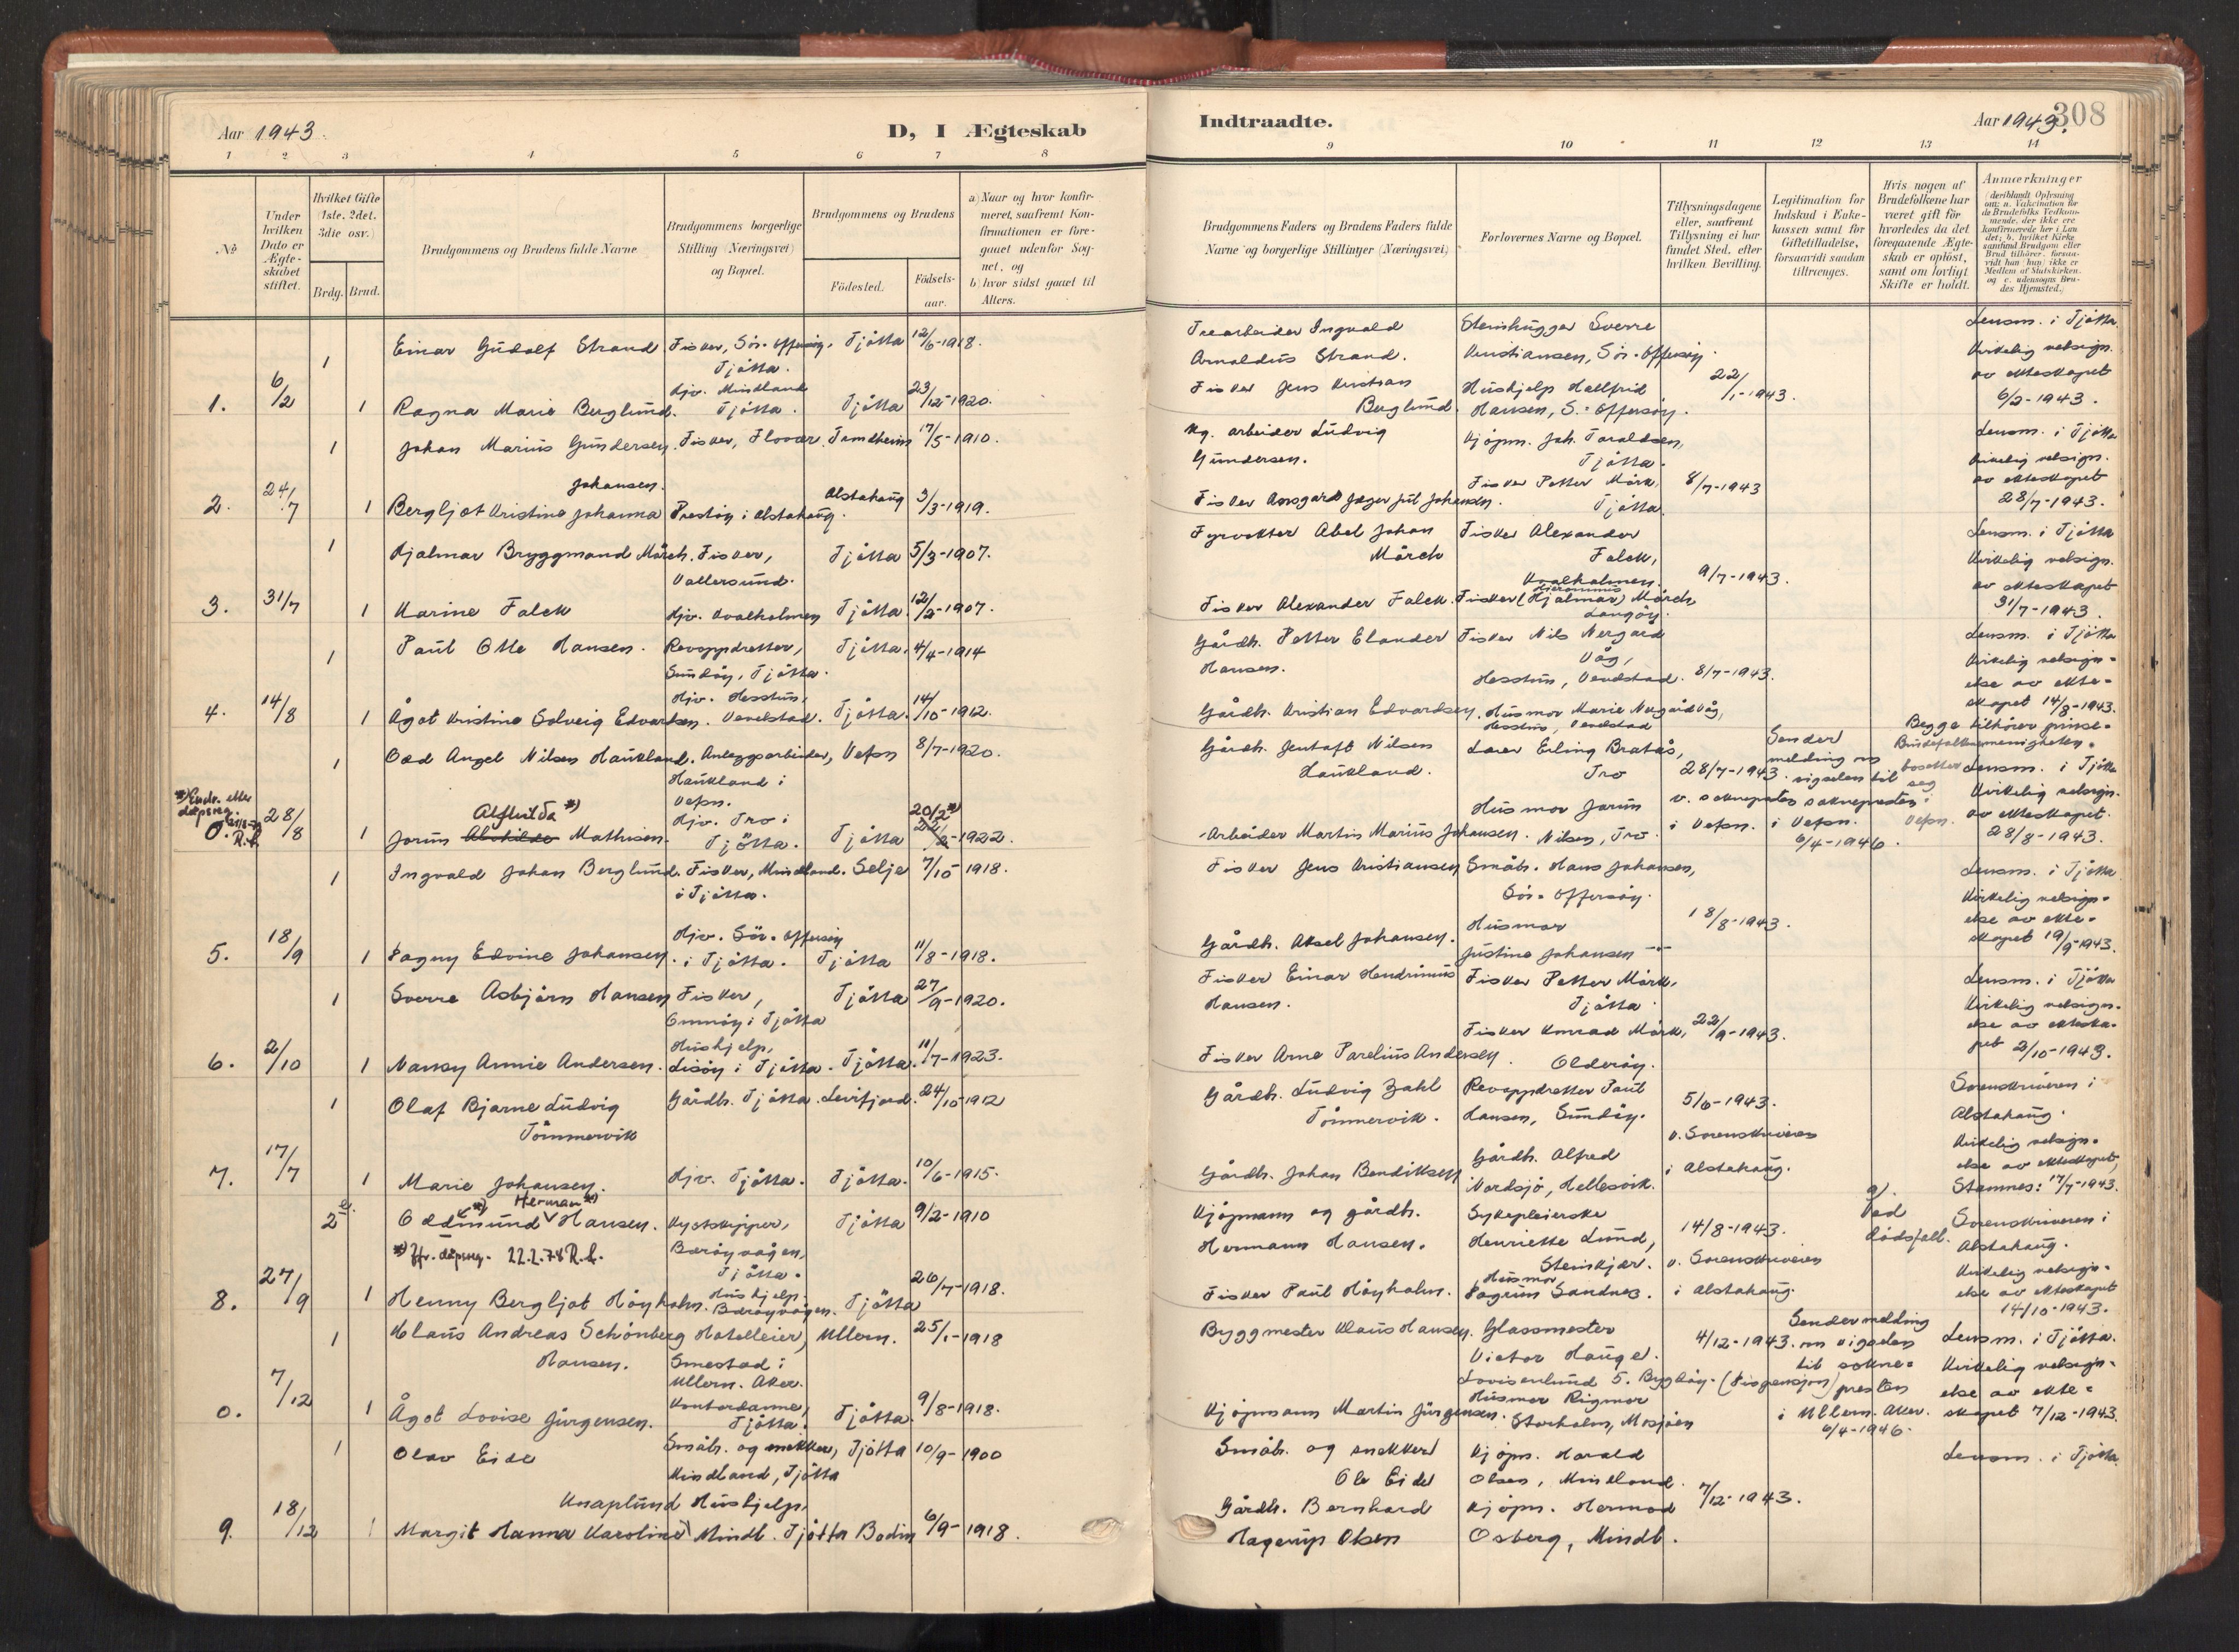 Aar 1943.
D, I Ægteskab
1 2 3 4 5 6 7 8
No
Under hvilken Dato er Ægteskabet stiftet.
Hvilket Gifte (1ste, 2det, 3die osv.)
Brdg. Brud.
Brudgommens og Brudens fulde Navne
Brudgommens borgerlige Stilling (Næringsvei) og Bopæl.
Brudgommens og Brudens
Fødested.
Fødselsaar.
a) Naar og hvor konfirmeret, saafremt Konfirmationen er foregaaet udenfor Sognet, og
b) hvor sidst gaaet til Alters.
1 Einar Gudolf Strand Fisker, Sör-Offersöy, Tjötta 12/6-1918.
Tjötta.
1. 6/2 1 Ragna Marie Berglund. Hjv. Mindland Tjötta. Tjötta 23/12-1920.
1 Johan Marius Gundersen. Fisker, Flovær. Tømdheim 17/5-1910.
Johansen.
2. 24/7 1 Bergljot Kristine Johanna Prestöy i Alstahaug. Alstahaug 3/3-1919.
1 Hjalmar Bryggmand Mörch. Fisker, Tjötta 5/3-1907.
Vallersund.
3. 31/7 1 Karine Falck Hjv. Kvalholmen Tjötta. 12/2-1907.
1 Paul Otto Hansen. Revoppdretter, Tjötta. 4/4-1914
Sundöy, Tjötta.
4. 14/8 1 Ågot Kristine Solveig Edvardsen. Hjv. Hesstun, Vevelstad. Tjötta. 14/10-1912.
1 Odd Angel Nilsen Haukland. Anleggsarbeider, Vefsn 8/7-1920.
Haukland i
Vefsn.
*) Endr. etter dåpsreg. R.f.
Alfhilda *)
0. 28/8 1 Jorun Alvhilde Mathisen. Hjv. Tro i Tjötta. Tjötta 20/2 *) 1922.
1 Ingvald Johan Berglund. Fisker, Mindland. Selje 7/10-1918.
i Tjötta.
5. 18/9 1 Pagny Edvine Johansen. Hjv. Sör-Offersöy i Tjötta. Tjötta 11/8-1918.
1 Sverre Asbjörn Hansen Fisker, Tjötta 27/9-1920.
Omnöy i Tjötta
6. 2/10 1 Nancy Annie Andersen. Hushjelp, Lisöy i Tjötta. Tjötta. 11/7-1923.
1 Olaf Bjarne Ludvig Gårdb. Tjötta. Levifjord. 24/10-1912
Tömmervik
7. 17/7 1 Marie Johansen. Hjv. Tjötta. Tjötta. 10/6-1915.
Herman *)
2 Oddmund Hansen. Kystskipper, Tjötta 9/2-1910
*) Jfr. dåpsreg. 22.2.78 R.f. Bæröyvågen,
Tjötta.
8. 27/9 1 Henny Bergljot Höyholm. Hushjelp. Bæröyvågen. Tjötta 26/7-1918.
1 Klaus Andreas Schönberg Hotelleier, Ullern. 25/1-1918
Hansen. Smestad i
Ullern. Aker.
0. 7/12 1 Ågot Lovise Jürgensen. Kontordame, Tjötta. Tjötta. 9/8-1918.
1 Olav Eide Småb. og snekker, Tjötta 10/9-1900
Mindland, Tjötta
Knaplund Hushjelp,
9. 18/12 1 Margit Hanna Karoline Mindl. Tjötta Bodin 6/9-1918.
Indtraadte.
Aar 1943. 308
9 10 11 12 13 14
Brudgommens Faders og Brudens Faders fulde Navne og borgerlige Stillinger (Næringsvei)
Forlovernes Navne og Bopæl.
Tillysningsdagene eller, saafremt Tillysning ei har fundet Sted, efter hvilken Bevilling.
Legitimation for Indskud i Enkekassen samt for Giftetilladelse, forsaavidt saadan tiltrænges.
Hvis nogen af Brudefolkene har været gift før hvorledes da det foregaaende Ægteskab er opløst, samt om lovligt Skifte er holdt.
Anmærkninger (deriblandt Oplysning om: a. Vaksination for de Brudefolks Vedkommende, der ikke ere konfirmerede her i Landet; b. hvilket Kirkesamfund Brudgom eller Brud tilhører, forsaavidt han (hun) ikke er Medlem af Statskirken, og c. udensogns Brudes Hjemsted.)
Trearbeider Ingvald Steinhugger Sverre Lensm. i Tjötta
Arnoldus Strand. Kristiansen, Sör-Offersöy. Kirkelig velsign.
Fisker Jens Kristian Hushjelp Hallfrid 22/1-1943. av ekteskapet
Berglund. Hansen, S.-Offersöy. 6/2-1943.
Kg. arbeider Ludvig Kjöpm. Joh. Toraldsen, Lensm. i Tjötta
Gundersen. Tjötta. Kirkelig velsign.
Fisker Petter Mörk, 8/7-1943 av ekteskapet
Fisker Johansen. Tjötta. 28/7-1943.
Fyrvokter Abel Johan Fisker Alexander Lensm. i Tjötta
Mörch Falck, Kirkelig velsign.
Kvalholmen. 9/7-1943. av ekteskapet
Fisker Alexander Falck. Fisker (Hjalmar) Mörch 31/7-1943.
Langöy.
Gårdb. Petter Elander Fisker Nils Nergård Lensm. i Tjötta
Hansen. Våg, Kirkelig velsign-
Hesstun, Vevelstad. 8/7-1943. else av ekte-
Gårdb. Kristian Edvardsen. Husmor Marie Nergård Våg, skapet 14/8-1943.
Hesstun, Vevelstad Begge tilhörer
Gårdb. Jentoft Nilsen Lærer Erling Bratås, Sender menigheten.
Haukland. Tro 28/7-1943. melding om vigselen til Brudefolkene bosetter seg Lensm. i Tjötta
Husmor Jorun v. sokneprøsten soknepresten Kirkelig velsign.
Arbeider Martin Marius Johansen. Nilsen, Tro. i Vefsn. i Vefsn. Vefsn. av ekteskapet.
6/4-1946. 28/8-1943.
Fisker Jens Kristiansen Småb. Hans Johansen, Lensm. i Tjötta
Sör-Offersöy. Kirkelig velsign-
Husmor 18/8-1943. else av ekte-
Gårdb. Aksel Johansen. Justine Johansen -"- skapet 19/9-1943.
Fisker Einar Hendrinius Fisker Petter Mörk, Lensm. i Tjötta
Hansen. Tjötta. Kirkelig velsign-
Fisker Konrad Mörk, 22/9-1943. else av ekteska-
Fisker Arne Parelius Andersen. Olderöy. pet 2/10-1943.
Gårdb. Ludvig Zahl Revoppdretter Paul 5/6-1943. Sorenskriveren i
Tömmervik. Hansen, Sundöy. v. Sorenskriveren Alstahaug.
Gårdb. Alfred i Alstahaug. Kirkelig velsign-
Gårdb. Johan Bendiksen Nordsjö, Hellesvik. else av ekteskapet,
Stamnes: 17/7-1943.
Kjöpmann og gårdb. Sykepleierske a). Ved Sorenskriveren i
Hermann Hansen. Henriette Lund, 14/8-1943. dödsfall. Alstahaug.
Steinkjer. v. Sorenskriveren Kirkelig velsign-
Fisker Paul Höyholm. Husmor Pagrun Sandnes. i Alstahaug. else av ekteskapet
14/10-1943.
Byggmester Klaus Hansen. Glassmester 4/12-1943. Sender melding om vigselen Lensm. i Tjötta.
Victor Hauge. til sokne- Kirkelig velsign-
Lovisenlund 5. Bygdöy. (Dispensasjon) presten else av ekte-
Kjöpmann Martin Jürgensen. Husmor Rigmor Storholm, Mosjöen i Ullern. Aker. skapet 7/12-1943.
6/4-1946.
Småb. og snekker Kjöpm. Harald Lensm. i Tjötta.
Ole Eide Olsen, Mindland.
Gårdb. Bernhard Kjöpm. Hermod 7/12-1943.
Hagerup Olsen Osberg, Mindl.